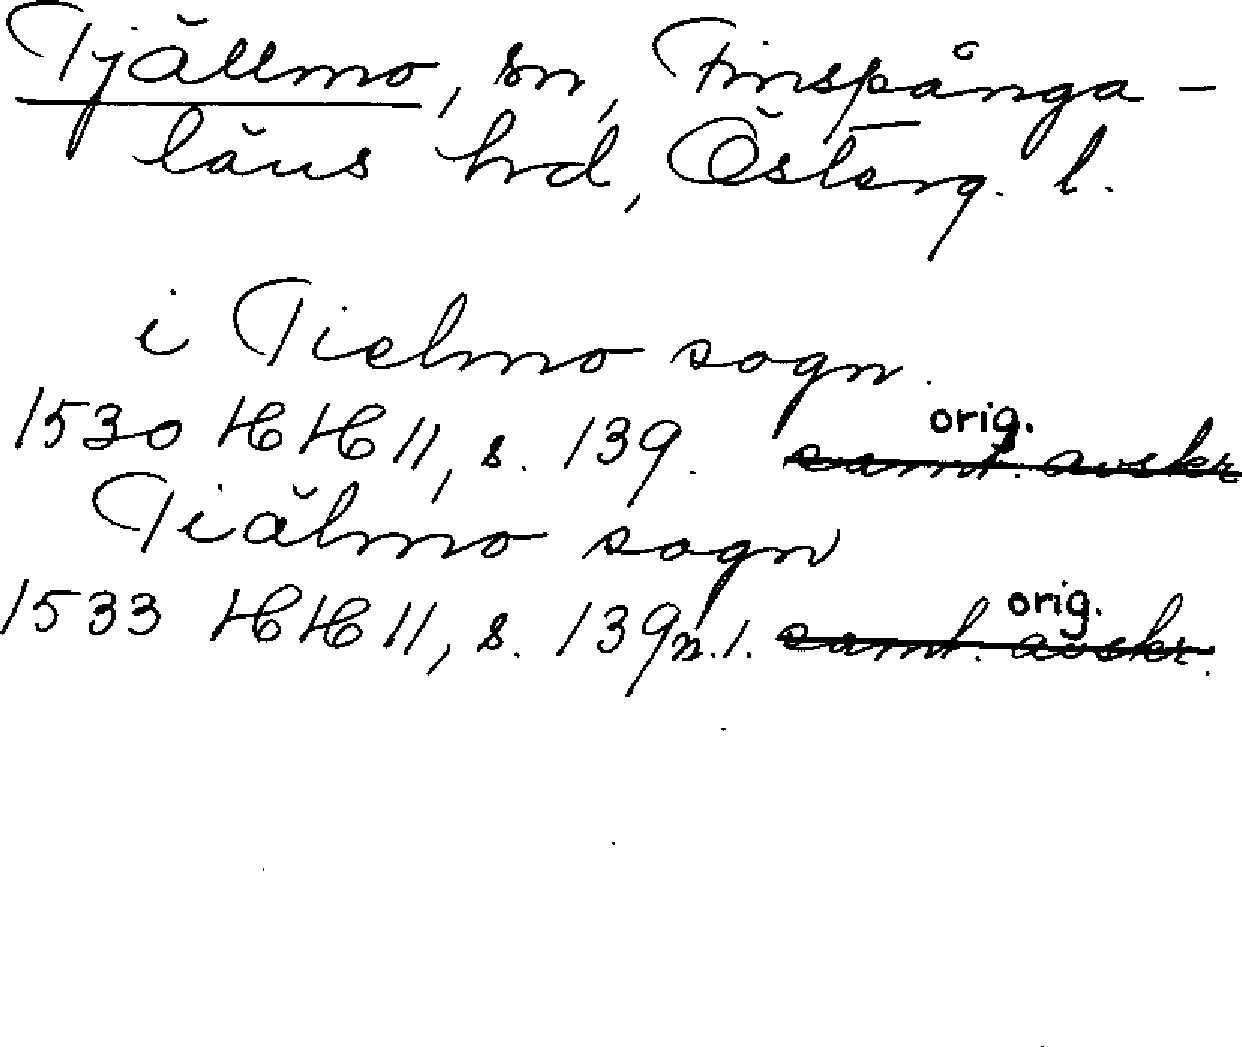 Tjällmo, sn, Finspånga-
läns hrd, Österg. l.
i Tielmo sogn.
1530 HH 11, s. 139. orig. samt. avskr
Tiälmo sogn
1533 HH 11, s. 139 n.1. orig. samt. avskr.